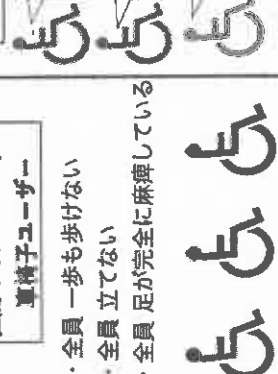 車椅子ユーザー
・全員 一歩も歩けない
・全員 立てない
・全員 足が完全に麻痺している